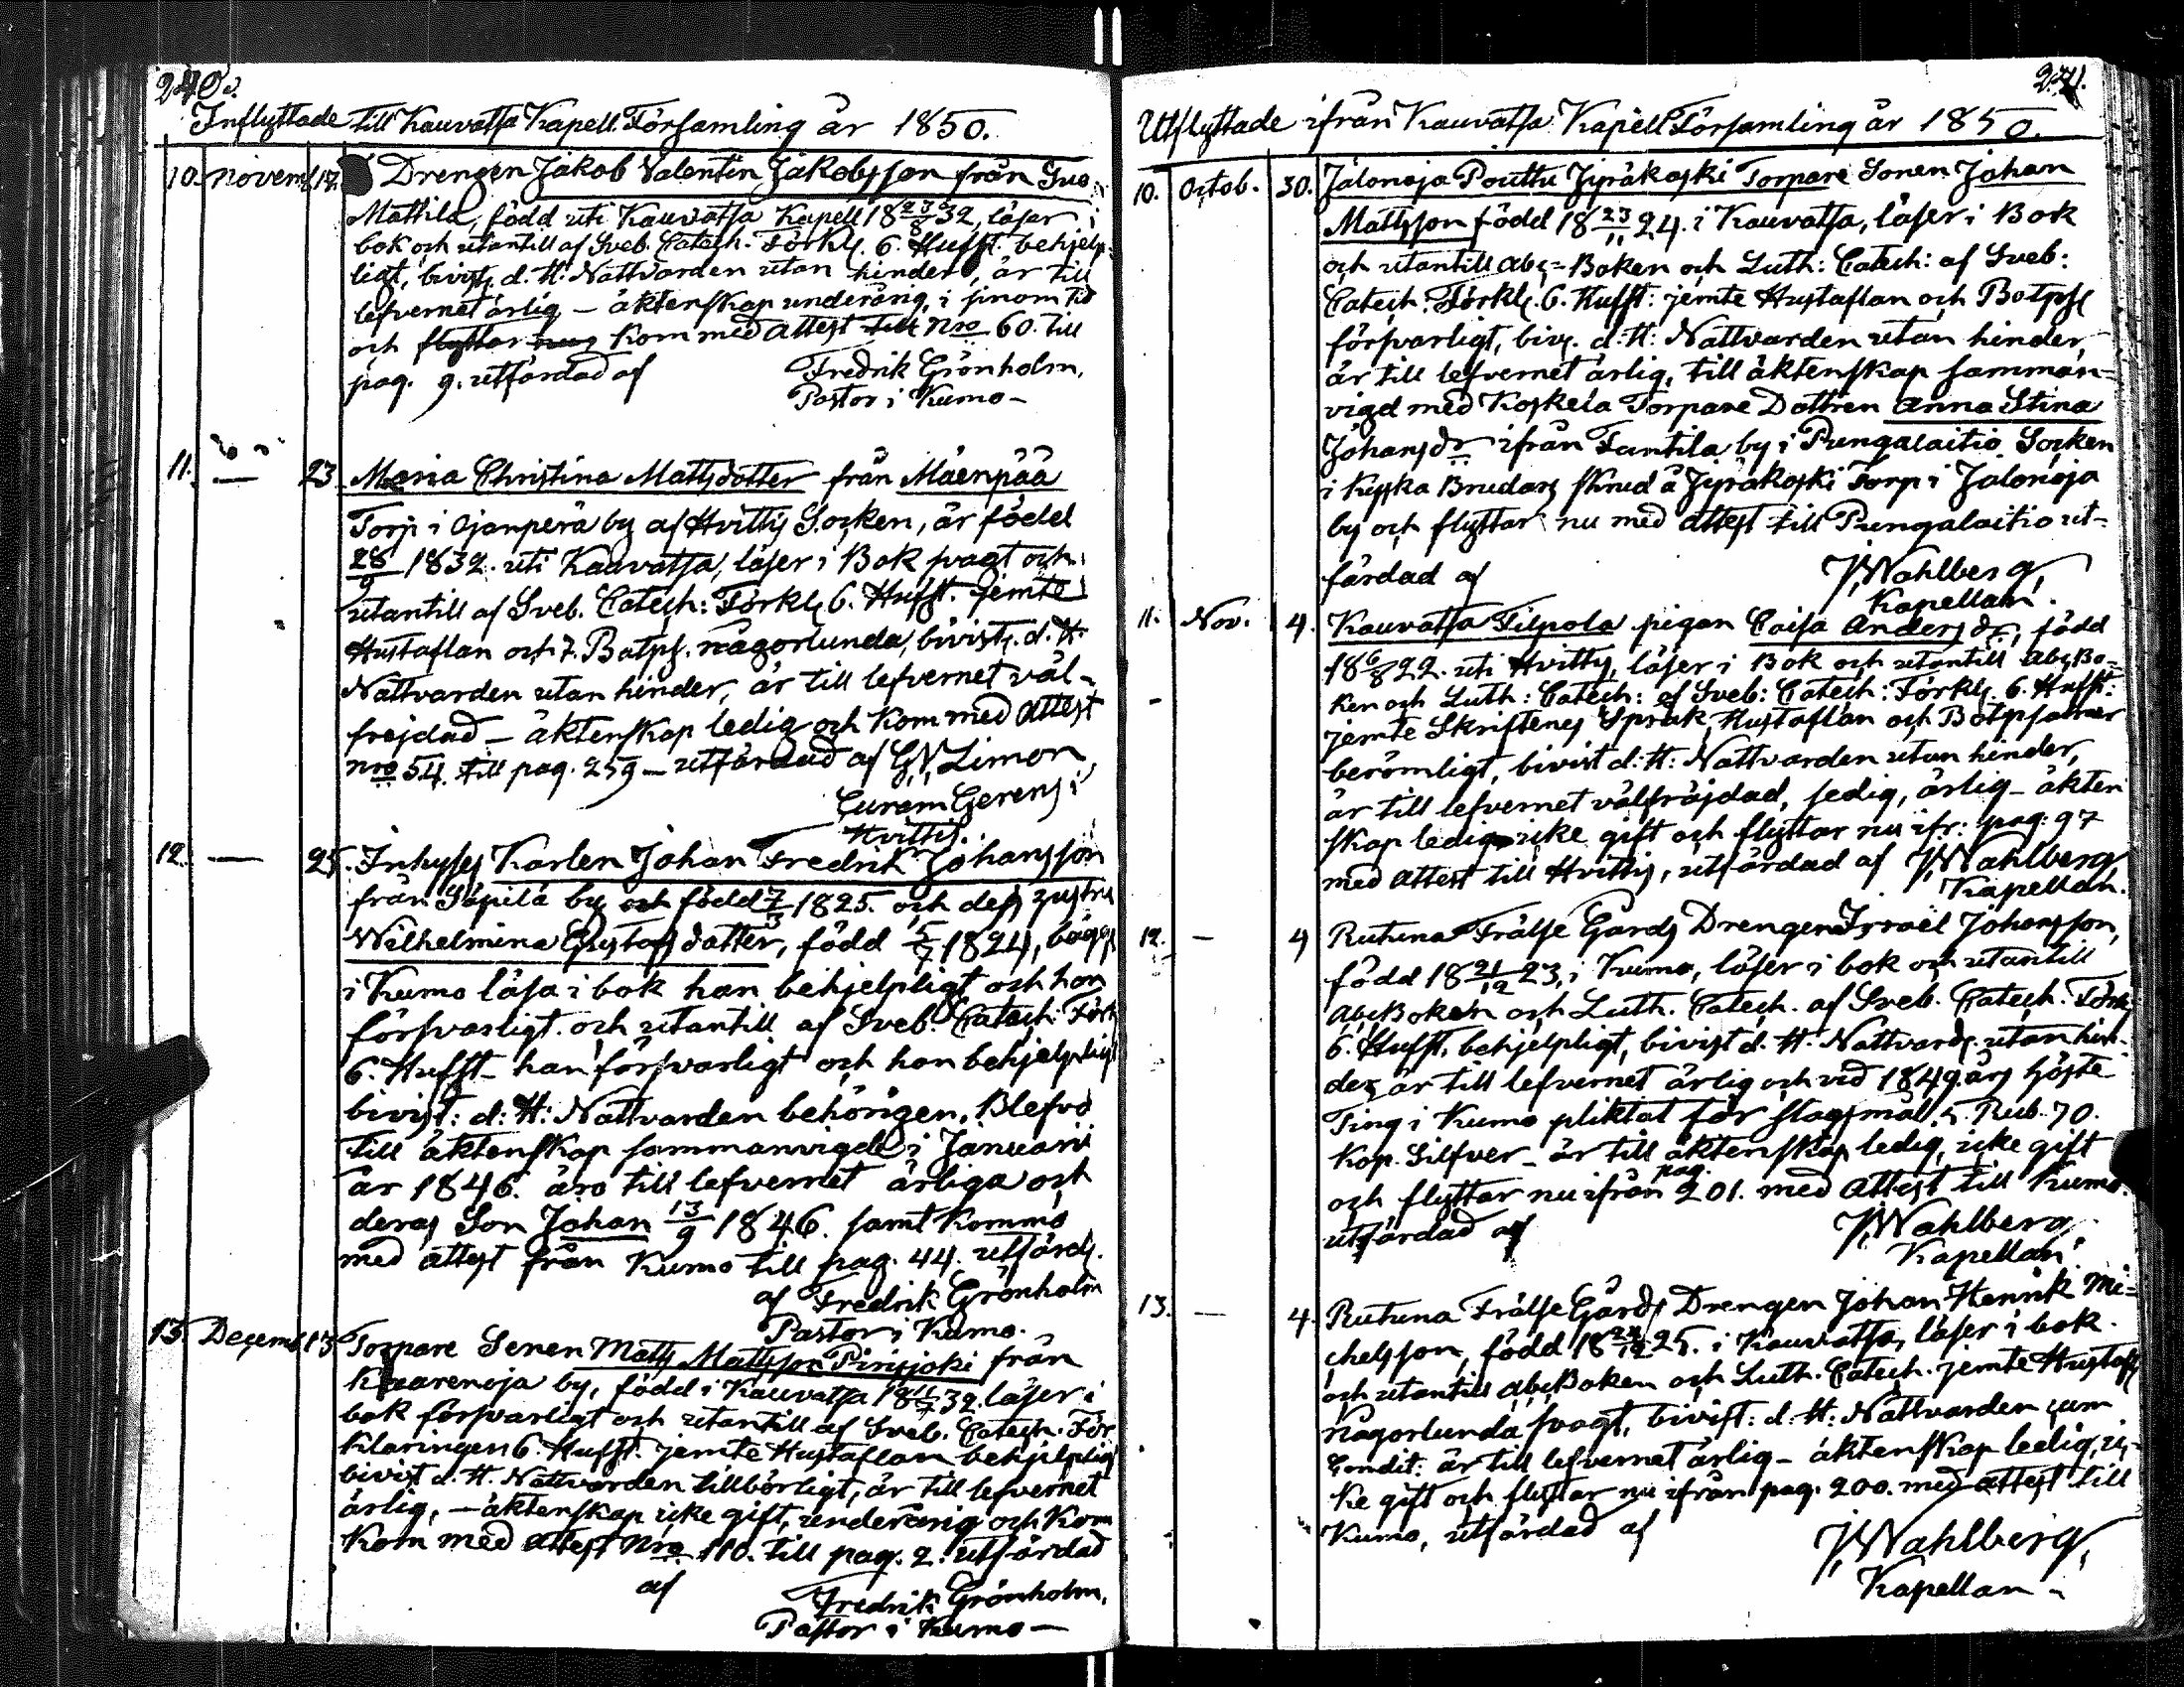 240.
Inflyttade till Kauvatsa Kapell Församling år 1850.
10. Novemb. 17. Drengen Jakob Valentin Jakobsson från
Mattila, född uti Kauvatsa Kapell 18 23/8 32, läser i
bok och utantill af Sveb. Catech. Förkl. 6. Hufst. behjelp-
ligt, bivist. d. H. Nattvarden utan hinder, är till
lefvernet ärlig – äktenskap underårig, i sinom tid
och flyttar nu kom med attest till Nro 60. till
pag. 9. utfärdad af Fredrik Grönholm,
Pastor i Kumo –
11. — 23. Maria Christina Mattsdotter från Mäenpää
Torp i Ojanperä by af Hvittis Socken, är född
28/9 1832. uti Kauvatsa, läser i Bok svagt och
utantill af Sveb. Catech: Förkl. 6. Hufst. jemte
Hustaflan och 7. Botps. någorlunda, bivist. d. H.
Nattvarden utan hinder, är till lefvernet väl-
frejdad – äktenskap ledig och kom med attest
nro 54. till pag. 259 – utfärdad af G. N. Limon,
Curam Gerens i
Hvittis.
12. — 25. Inhyses Karlen Johan Fredrik Johansson
från Säpilä by och född 7/3 1825. och dess hustru
Wilhelmina Gustafsdotter, född 5/7 1824, bägge
i Kumo läsa i bok han behjelpligt och hon
försvarligt och utantill af Sveb. Catech. Förk
6. Hufst – han försvarligt och hon behjelpligt
bivist: d: H: Nattvarden behörigen. Blefvo
till äktenskap sammanvigde i Januarii
år 1846. äro till lefvernet ärliga och
deras Son Johan 13/9 1846. samt kommo
med attest från Kumo till pag. 44. utfärd.
af Fredrik Grönholm
Pastor i Kumo.
13. Decemb. 13. Torpare Sonen Matts Mattsson Pirisjoki från
Kaarenoja by, född i Kauvatsa 18 11/7 32. läser i
bok försvarligt och utantill af Sveb. Catech. För
klaringen 6. Hufst. jemte Hustaflan behjelpligt
bivist d. H. Nattvarden tillbörligt, är till lefvernet
ärlig, – äktenskap icke gift, underårig och kom
kom med attest Nro 110. till pag. 2. utfärdad
af Fredrik Grönholm,
Pastor i Kumo –
241.
Utflyttade ifrån Kauvatsa Kapell Församling år 1850.
10. Octob. 30. Jalonoja Pouttu Jyräkoski Torpare Sonen Johan
Mattsson född 18 23/11 24. i Kauvatsa, läser i Bok
och utantill abc-Boken och Luth: Catech: af Sveb:
Catech: Förkl. 6. Hufst: jemte Hustaflan och Botps
försvarligt, biv. d: H: Nattvarden utan hinder,
är till lefvernet ärlig, till äktenskap samman-
vigd med Koskela Torpare Dottren Anna Stina
Johansdr ifrån by i Pungalaitio Socken
i Kyrka Brudars skrud å Jyräkoski Torp i Jalonoja
by och flyttar nu med attest till Pungalaitio ut-
färdad af J Wahlberg,
Kapellan.
11. Nov. 4. Kauvatsa Filpola pigan Caisa Andersdr, född
18 6/8 22. uti Hvittis, läser i Bok och utantill abc Bo-
ken och Luth: Catech: af Sveb: Catech: Förkl. 6. Hufst:
jemte Skriftenes Språk, Hustaflan och Botpsalmer
berömligt, bivist d: H: Nattvarden utan hinder,
är till lefvernet välfräjdad, sedig, ärlig – äkten
skap ledig icke gift och flyttar nu ifr: pag: 97
med attest till Hvittis, utfärdad af J Wahlberg
Kapellan.
12. — 4 Rutuna Frälse Gårds Drengen Israel Johansson,
född 18 21/12 23, i Kumo, läser i bok och utantill
abc Boken och Luth. Catech. af Sveb. Catech. Förk
6. Hufst. behjelpligt, bivist d. H. Nattvard. utan hin-
der, är till lefvernet ärlig och vid 1849 års höste
Ting i Kumo pliktat för slagsmål 5. Rub. 70.
Kop. Silfver – är till äktenskap ledig, icke gift
och flyttar nu ifrån pag. 201. med attest till Kumo.
utfärdad af J Wahlberg
Kapellan
13. — 4. Rutuna Frälse Gårds Drengen Johan Henrik Mi-
chelsson, född i Kauvatsa, läser i bok
och utantill abc Boken och Luth. Catech. jemte Hustafl
någorlunda svagt, bivist: d: H: Nattvarden cum
Condit: är till lefvernet ärlig – äktenskap ledig, ic-
ke gift och flyttar nu ifrån pag. 200. med attest till
Kumo, utfärdad af J Wahlberg,
Kapellan –